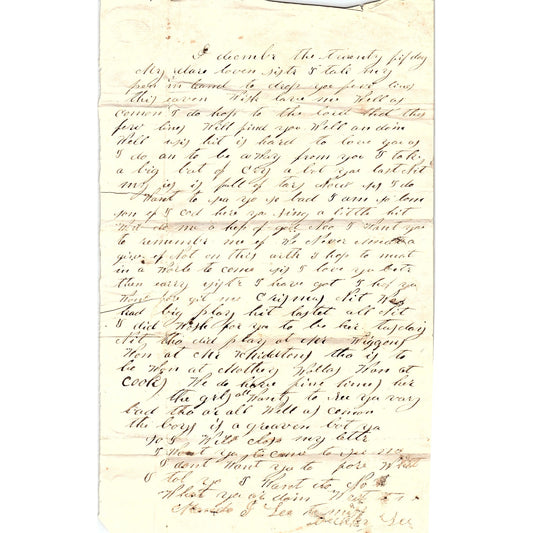 I decmbr the twenty fif day
My dare loven sister I take my
pen in hand to drop you fue lines
this eaven Wich lave me Well as
comon I do hope to the lord that this
fue lines Will find you Well an doin
Well sis hit is hard to love you as
I do an to be away from you I take
a big of cry a bot you last Nit
my is is full of tars Now sis I do
Want to see you so bad I am so lom
som if I cod here you sing a little hit
Wod do me a heap of good Now I Want you
to remember me if We Never meet
gin if Not on this arth I hop to meat
in a World to come sis I love you beter
than eany sister I have got I hop you
Wont for git me Crismas Nit Was
had big play hit lastet all Nit
I did Wish for you to be hir tusday
Nit tha did play at Mr Wiggons
Won at Mr tha is to
be Won at Mothey Wills Won at
Cooks We do have fine times her
the girls all Wants to see you vary
bad tha ar all Well as comon
the boys is a greaven bot you
so I Will clos my letr
I Want you to come to see me
I dont Want you to for What
I tol you I Want to No
What you ar doin
Lee
Lee